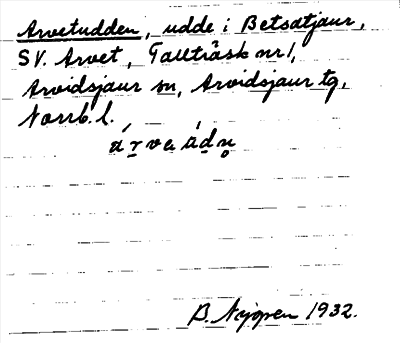 Arvetudden, udde i Betsatjaur,
SV. Arvet, Tallträsk nr 1,
Arvidsjaur sn, Arvidsjaur tg,
Norrb. l.
B. Nygren 1932.